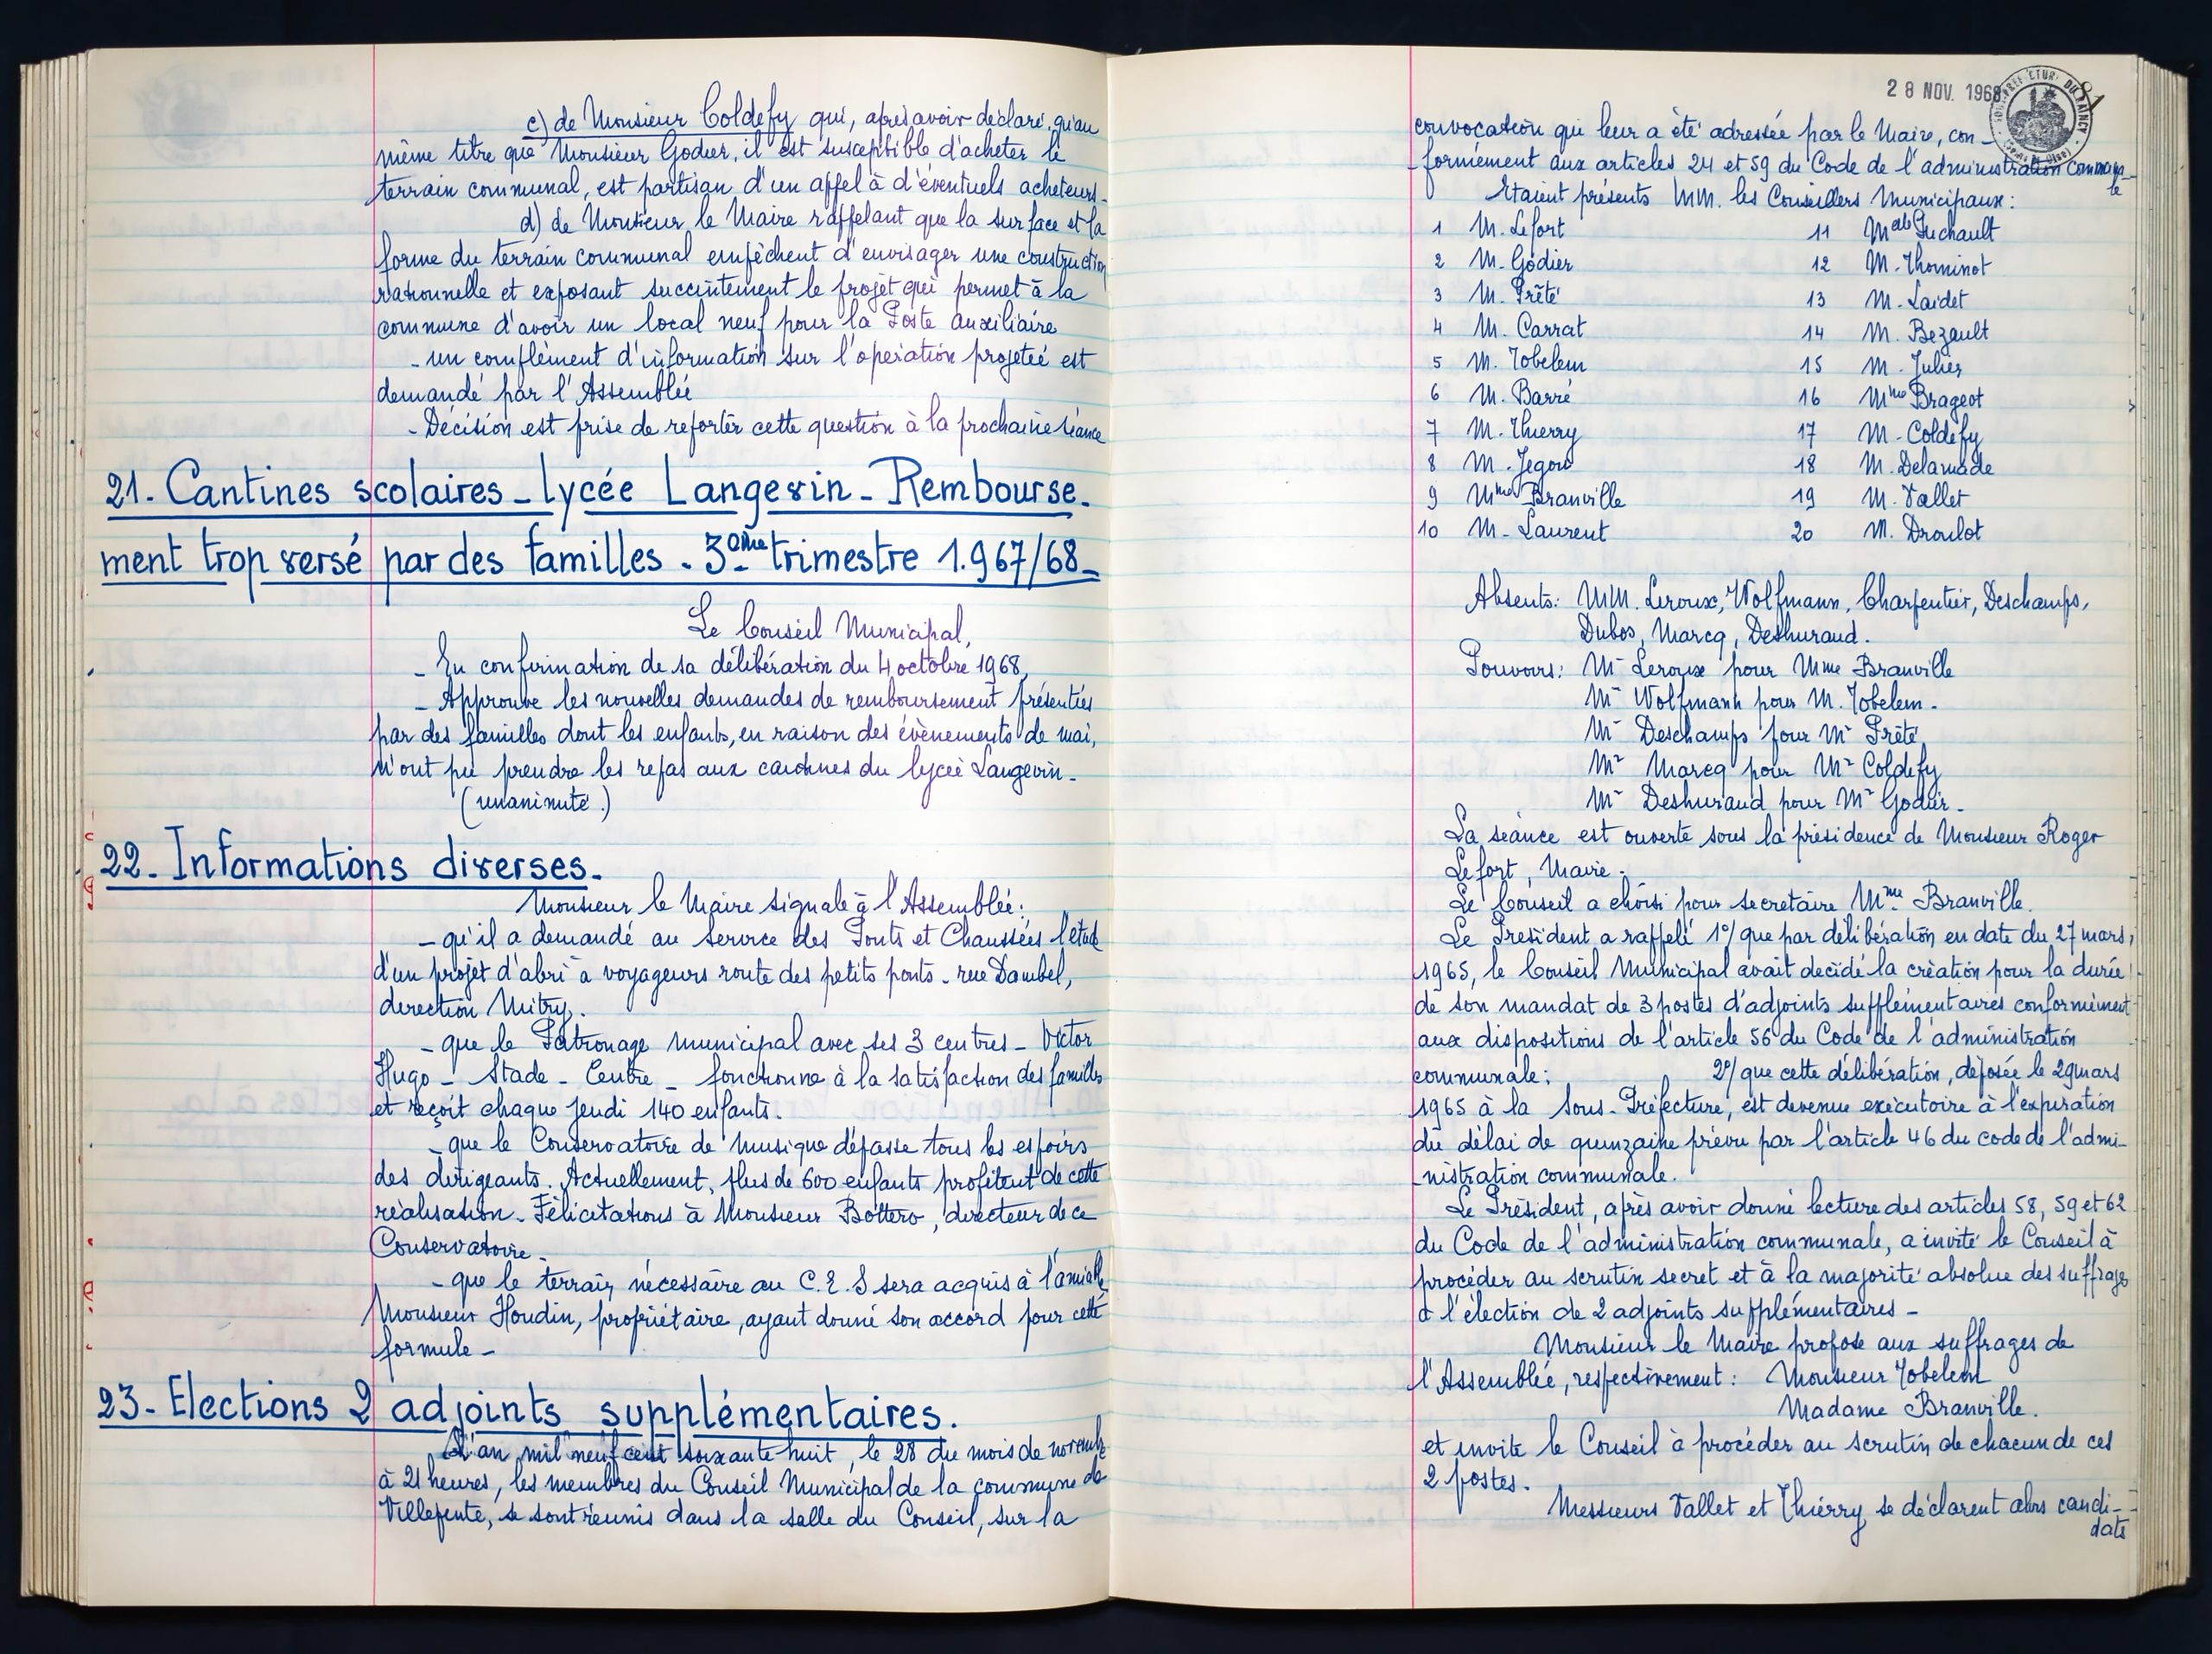 c) de Monsieur Coldefy qui, après avoir déclaré, qu'au
même titre que Monsieur Godier, il est susceptible d'acheter le
terrain communal, est partisan d'un appel à d'éventuels acheteurs.
d) de Monsieur le Maire rappelant que la surface et la
forme du terrain communal empêchent d'envisager une construction
rationnelle et exposant succintement le projet qui permet à la
commune d'avoir un local neuf pour la Poste auxiliaire
- un complément d'information sur l'opération projetée est
demandé par l'Assemblée
- Décision est prise de reporter cette question à la prochaine séance
21. Cantines scolaires - lycée Langevin - Rembourse-
ment trop versé par des familles . 3ème trimestre 1.967/68 -
Le Conseil Municipal,
- En confirmation de sa délibération du 4 octobre 1968,
- Approuve les nouvelles demandes de remboursement présentées
par des familles dont les enfants, en raison des évènements de mai,
n'ont pu prendre les repas aux cantines du lycée Langevin -
(unanimité.)
22. Informations diverses.
Monsieur le Maire signale à l'Assemblée :
- qu'il a demandé au Service des Ponts et Chaussées l'étude
d'un projet d'abri à voyageurs route des petits ponts - rue Dambel,
direction Mitry.
- que le Patronage municipal avec ses 3 centres - Victor
Hugo - Stade - Centre - fonctionne à la satisfaction des familles
et reçoit chaque jeudi 140 enfants.
- que le Conservatoire de Musique dépasse tous les espoirs
des dirigeants. Actuellement, plus de 600 enfants profitent de cette
réalisation. Félicitations à Monsieur Bottero, directeur de ce
Conservatoire -
- que le terrain nécessaire au C.E.S sera acquis à l'amiable
Monsieur Houdin, propriétaire, ayant donné son accord pour cette
formule -
23- Elections 2 adjoints supplémentaires.
L'an mil neuf cent soixante huit, le 28 du mois de novembre
à 21 heures, les membres du Conseil Municipal de la commune de
Villepinte, se sont réunis dans la salle du Conseil, sur la
28 NOV. 1968
convocation qui leur a été adressée par le Maire, con-
-formément aux articles 24 et 59 du Code de l'administration communa-
le
Etaient présents MM. les Conseillers Municipaux :
1 M. Lefort 11 Melle Guchault
2 M. Godier 12 M. Thominot
3 M. Prêté 13 M. Laidet
4 M. Carrat 14 M. Bezault
5 M. Tobelem 15 M. Julier
6 M. Barré 16 Mme Brageot
7 M. Thierry 17 M. Coldefy
8 M. Jegou 18 M. Delamade
9 Mme Branville 19 M. Vallet
10 M. Laurent 20 M. Droulot
Absents : MM. Leroux, Wolfmann, Charpentier, Deschamps,
Dubos, Marcq, Deshuraud.
Pouvoirs : Mr Leroux pour Mme Branville
Mr Wolfmann pour M. Tobelem.
Mr Deschamps pour Mr Prêté
Mr Marcq pour Mr Coldefy
Mr Deshuraud pour Mr Godier.
La séance est ouverte sous la présidence de Monsieur Roger
Lefort, Maire.
Le Conseil a choisi pour secrétaire Mme Branville.
Le Président a rappelé 1°/ que par délibération en date du 27 mars,
1965, le Conseil Municipal avait décidé la création pour la durée
de son mandat de 3 postes d'adjoints supplémentaires conformément
aux dispositions de l'article 56 du Code de l'administration
communale ; 2°/ que cette délibération, déposée le 29 mars
1965 à la Sous-Préfecture, est devenue exécutoire à l'expiration
du délai de quinzaine prévu par l'article 46 du code de l'admi-
-nistration communale.
Le Président, après avoir donné lecture des articles 58, 59 et 62
du Code de l'administration communale, a invité le Conseil à
procéder au scrutin secret et à la majorité absolue des suffrages
à l'élection de 2 adjoints supplémentaires -
Monsieur le Maire propose aux suffrages de
l'Assemblée, respectivement : Monsieur Tobelem
Madame Branville.
et invite le Conseil à procéder au scrutin de chacun de ces
2 postes.
Messieurs Vallet et Thierry se déclarent alors candi-
dats